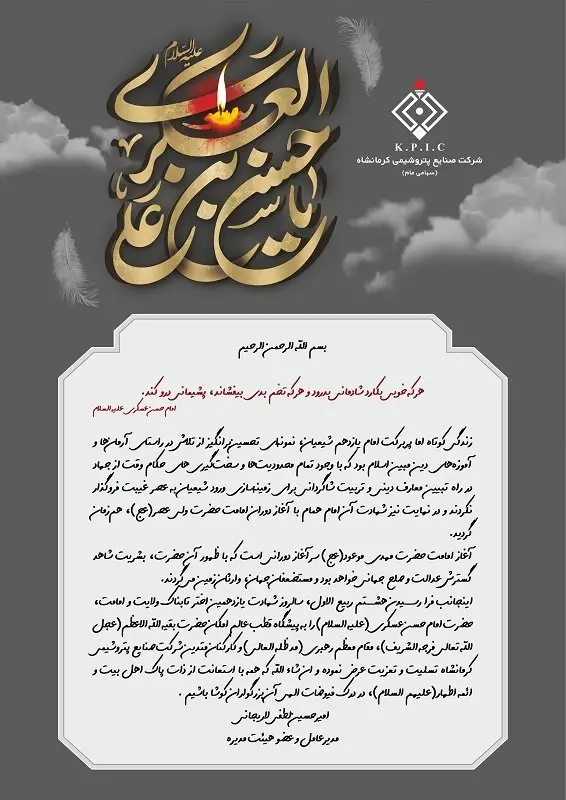 علیه‌السلام
یا حسن بن علی العسکری
K.P.I.C
شرکت صنایع پتروشیمی کرمانشاه
(سهامی عام)
بسم الله الرحمن الرحیم
هر که خوبی بکارد شادمانی بدرود و هر که تخم بدی بیفشاند، پشیمانی درو کند.
امام حسن عسکری علیه السلام
زندگی کوتاه اما پربرکت امام یازدهم شیعیان، نمونه‌ای تحسین‌برانگیز از تلاش در راستای آرمان‌ها و
آموزه‌های دین مبین اسلام بود که با وجود تمام محدودیت‌ها و سخت‌گیری‌های حکام وقت از جهاد
در راه تبیین معارف دینی و تربیت شاگردانی برای زمینه‌سازی ورود شیعیان به عصر غیبت فروگذار
نکردند و در نهایت نیز شهادت آن امام همام با آغاز دوران امامت حضرت ولی عصر(عج)، هم‌زمان
گردید.
آغاز امامت حضرت مهدی موعود(عج) سرآغاز دورانی است که با ظهور آن حضرت، بشریت شاهد
گسترش عدالت و صلح جهانی خواهد بود و مستضعفان جهان، وارثان زمین می‌گردند.
اینجانب فرا رسیدن هشتم ربیع الاول، سالروز شهادت یازدهمین اختر تابناک ولایت و امامت،
حضرت امام حسن عسکری (علیه السلام) را به پیشگاه قطب عالم امکان حضرت بقیه الله الاعظم (عجل
الله تعالی فرجه الشریف)، مقام معظم رهبری (مدظله العالی) و کارکنان فتدین شرکت صنایع پتروشیمی
کرمانشاه تسلیت و تعزیت عرض نموده و ان شاء الله که همه با استعانت از ذات پاک اهل بیت و
ائمه اطهار(علیهم السلام)، در درک فیوضات الهی آن بزرگواران کوشا باشیم .
امیرحسین لطفی لاریجانی
مدیرعامل و عضو هیئت مدیره